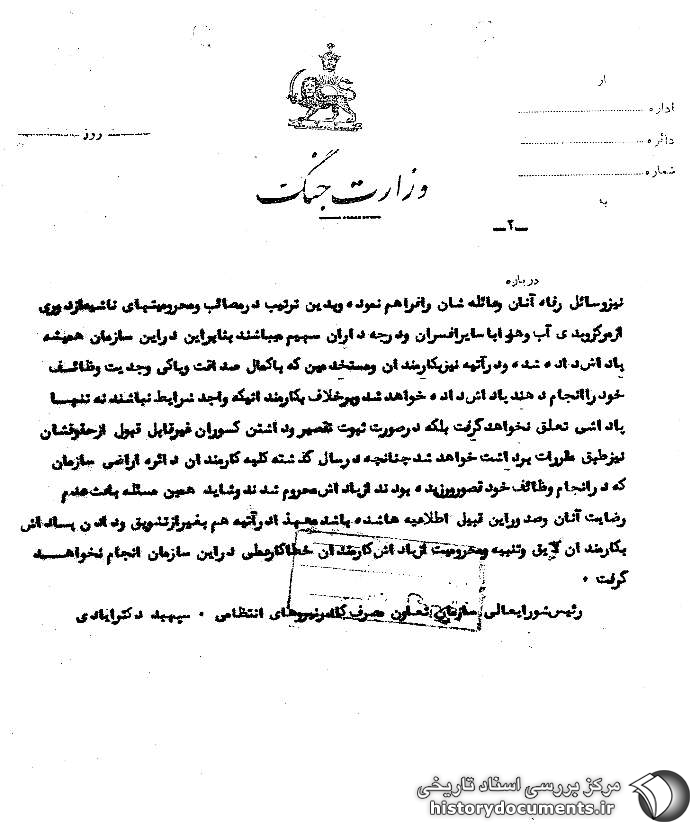 از
اداره
روز
دائره
شماره
وزارت جنگ
به
ـ۲ـ
درباره
نیز وسائل رفاه آنان وعائله شان رافراهم نموده وبدین ترتیب درمصائب ومحرومیتهای ناشیه ازدوری
ازمرکزوبدی آب وهوا باسایرافسران ودرجه داران سهیم میباشند بنابراین دراین سازمان همیشه
پاداش داده شده ودرآتیه نیزبکارمندان ومستخدمین که باکمال صداقت وپاکی وجدیت وظائف
خودراانجام دهند پاداش داده خواهد شد وبرخلاف بکارمندانیکه واجد شرایط نباشند نه تنها
پاداشی تعلق نخواهدگرفت بلکه درصورت ثبوت تقصیر وداشتن کسوران غیرقابل قبول ازحقوقشان
نیزطبق مقررات برداشت خواهد شد چنانچه درسال گذشته کلیه کارمندان دائره اراضی سازمان
که درانجام وظائف خود قصورورزیده بودند ازپاداش محروم شدند وشاید همین مسئله باعث عدم
رضایت آنان وصدوراین قبیل اطلاعیه هاشده باشد معهذا درآتیه هم بغیرازتشویق ودادن پساداش
بکارمندان لایق وتنبیه ومحرومیت ازپاداش کارمندان خطاکارعملی دراین سازمان انجام نخواهد
گرفت ۰
رئیس شورایعالی سازمان تعاون مصرف کادرنیروهای انتظامی ۰ سپهبد دکترایادی
مرکز بررسی اسناد تاریخی
historydocuments.ir